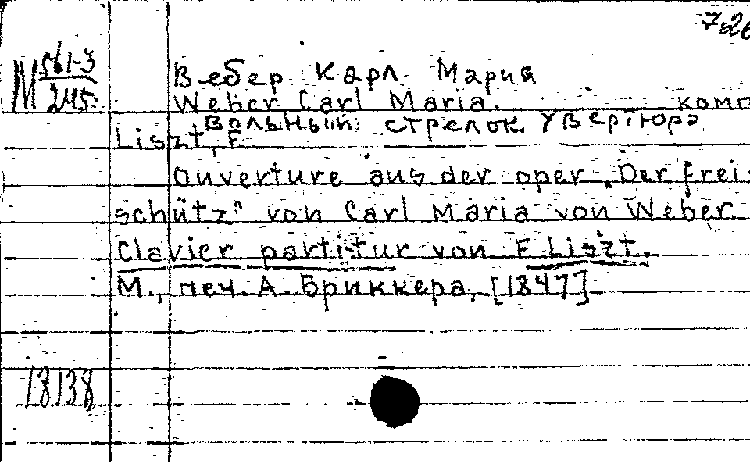 726
М 561-3
245
Вебер Карл Мария
Weber Carl Maria. комп
Вольный стрелок. Увертюра
Liszt, F.
Ouverture aus der oper „Der Frei-
schütz" von Carl Maria von Weber
Clavier partitur von F. Liszt.
М., печ. А. Бриккера, [1847]
18138